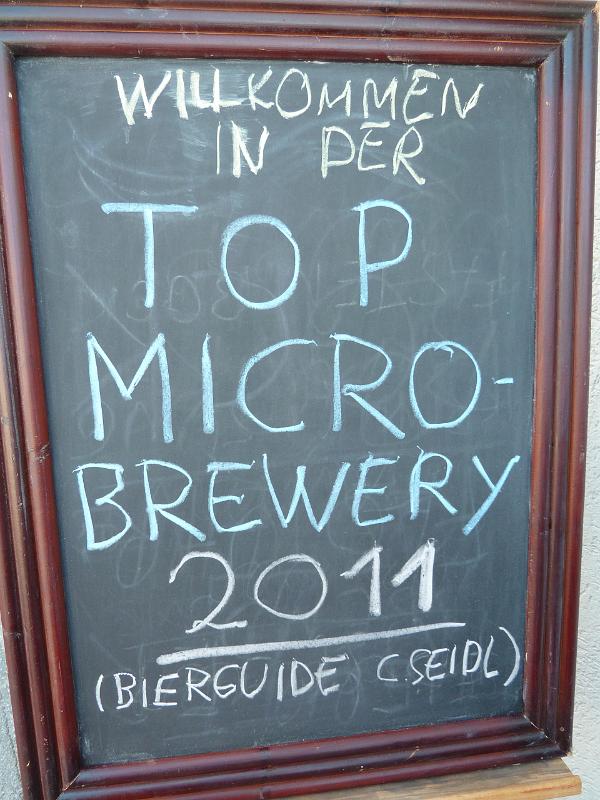 WILLKOMMEN
IN DER
TOP
MICRO-
BREWERY
2011
(BIERGUIDE C.SEIDL)